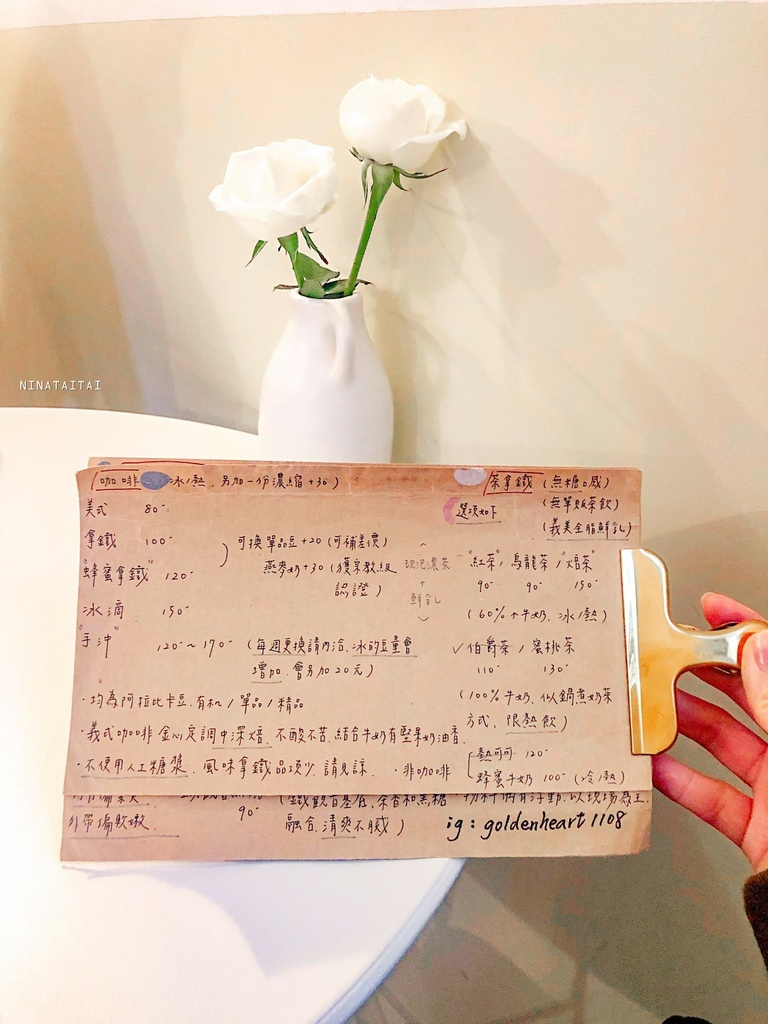 NINATAITAI
咖啡 冰/熱. 另加一份濃縮+30)
美式 80-
拿鐵 100-
"蜂蜜拿鐵" 120-
冰滴 150-
"手沖" 120-~170- (每週更換請內洽.冰的豆量會
增加.會另加20元)
可換單品豆+20 (可補差價)
燕麥奶+30 (獲皇教級
認證)
·均為阿拉比卡豆.有机/單品/精品
·義式咖啡 金心定調中深焙. 不酸不苦.結合牛奶有堅果奶油香.
·不使用人工糖漿. 風味拿鐵品項少.請見諒.
茶拿鐵 (無糖口感)
(無單販茶飲)
(義美全脂鮮乳)
選項如下
現泡濃茶
+
鮮乳
"紅茶"/烏龍茶/"焙茶"
90- 90- 150-
(60%↑牛奶、冰/熱)
✓伯爵茶/蜜桃茶
110- 130-
(100%牛奶.似鍋煮奶茶
方式.限熱飲)
·非咖啡
熱可可 120-
蜂蜜牛奶 100- (冷/熱)
(鐵觀音基底.茶香和黑糖
外帶偏軟嫩. 90- 融合.清爽不膩)
以現場為主.
ig: goldenheart1108